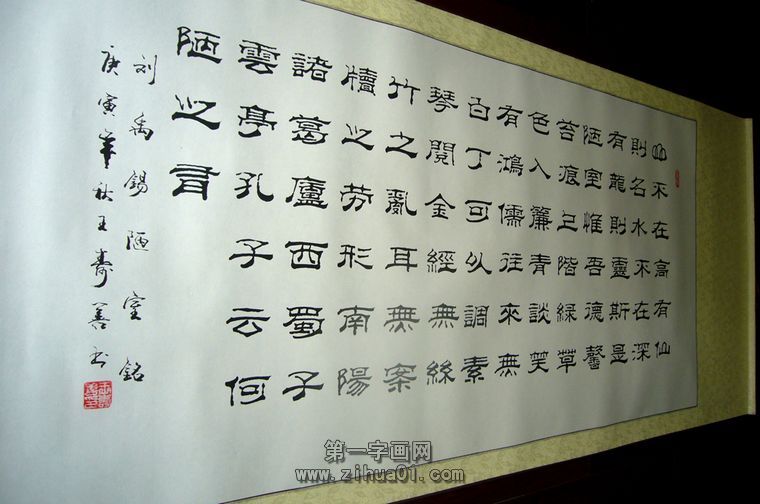 山不在高有仙
則名水不在深
有龍則靈斯是
陋室惟吾德馨
苔痕上階綠草
色入簾青談笑
有鴻儒往來無
白丁可以調素
琴閱金經無絲
竹之亂耳無案
牘之劳形南陽
諸葛廬西蜀子
雲亭孔子云何
陋之有
刘禹锡陋室銘
庚寅年秋王壽善书
第一字画网
www.zihua01.com